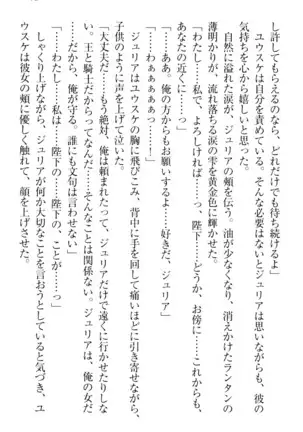 し許してもらえるのなら、どれだけでも待ち続けるよ」
ユウスケは自分を責めている。そんな必要はないとジュリアは思いながらも、彼の
気持ちを心から嬉しいと思った。
自然に溢れた涙が、ジュリアの頬を伝う。油が少なくなり、消えかけたランタンの
薄明かりが、流れ落ちる涙の雫を黄金色に輝かせた。
「わたし……私、で、よろしければ……っ、陛下……どうか、お傍に……これから、
あなたの近くに……っ」
「……あぁ、俺の方からもお願いするよ……好きだ、ジュリア」
「わぁぁぁぁっ……！」
ジュリアはユウスケの胸に飛びこみ、背中に手を回して痛いほどに引き寄せながら、
子供のように声を上げて泣いた。
「大丈夫だから……もう絶対、俺は頼まれたって、ジュリアだけで遠くに行かせたり
しない。王と騎士だからってなんだ……そんなことは関係ない。ジュリアは、俺の女だ
だから、俺が守る。誰にも文句は言わせない」
「……わたし、私は……陛下の、ことが……っ」
しゃくり上げながら、ジュリアが何か大切なことを言おうとしていると気づき、ユ
ウスケは彼女の頬に優しく触れて、顔を上げさせた。